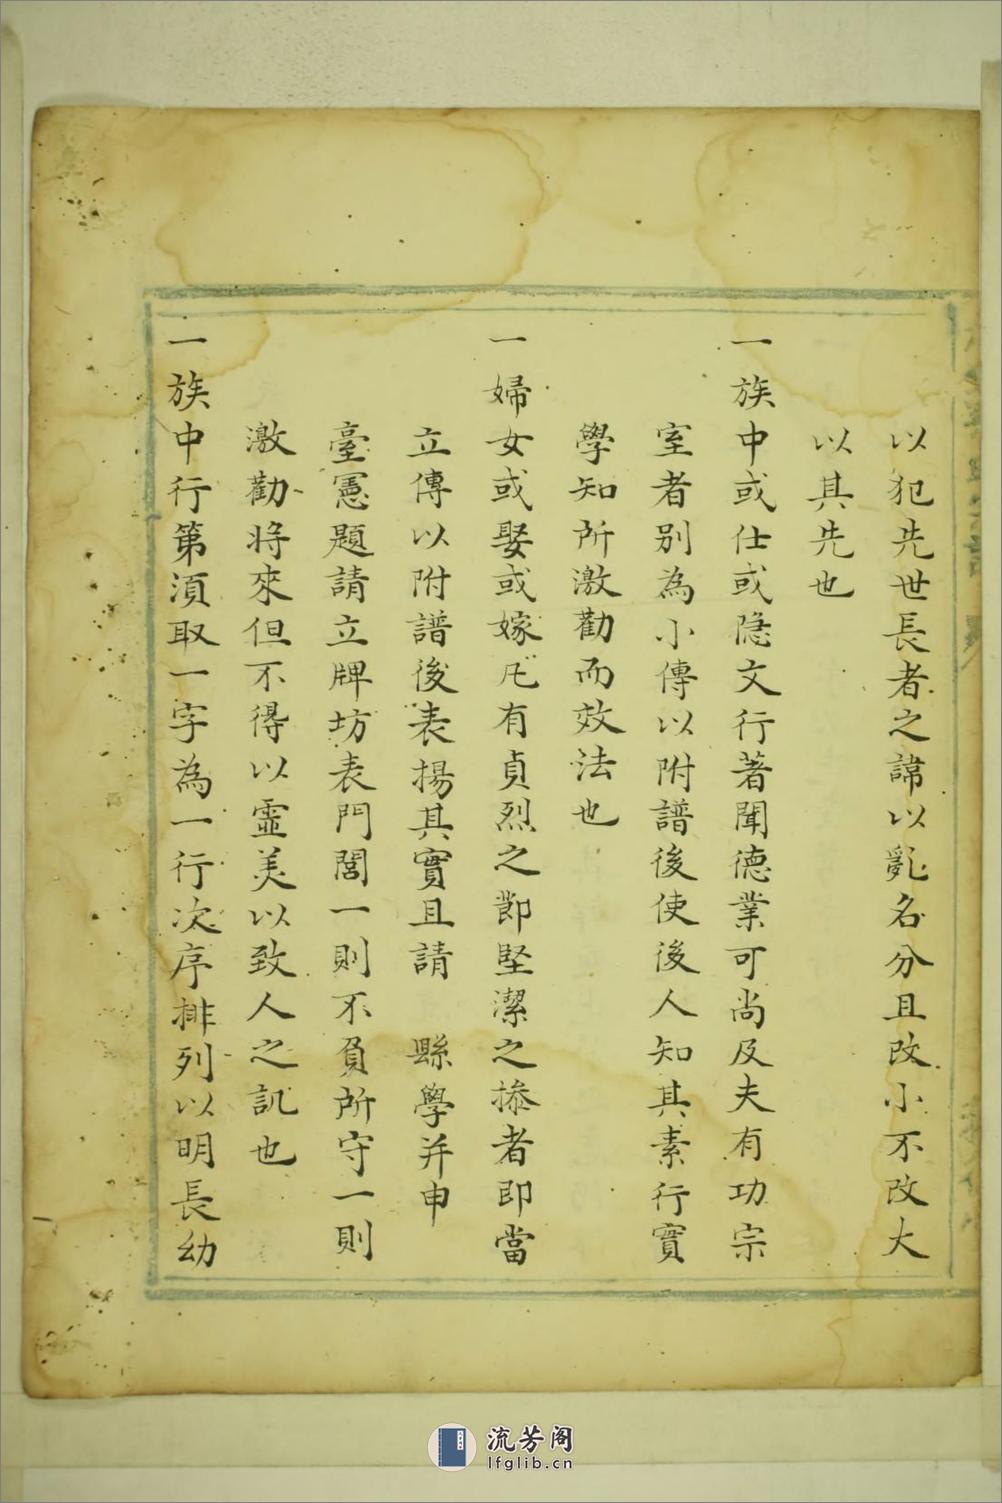 以犯先世長者之諱以亂名分且改小不改大
以其先也
一族中或仕或隐文行著聞德業可尚及夫有功宗
室者別為小傳以附譜後使後人知其素行實
學知所激勸而效法也
一婦女或娶或嫁凡有貞烈之節堅潔之操者即當
立傳以附譜後表揚其實且請 縣學并申
臺憲題請立牌坊表門閭一則不負所守一則
激勸將來但不得以虛美以致人之訊也
一族中行第須取一字為一行次序排列以明長幼
流芳阁
lfglib.cn